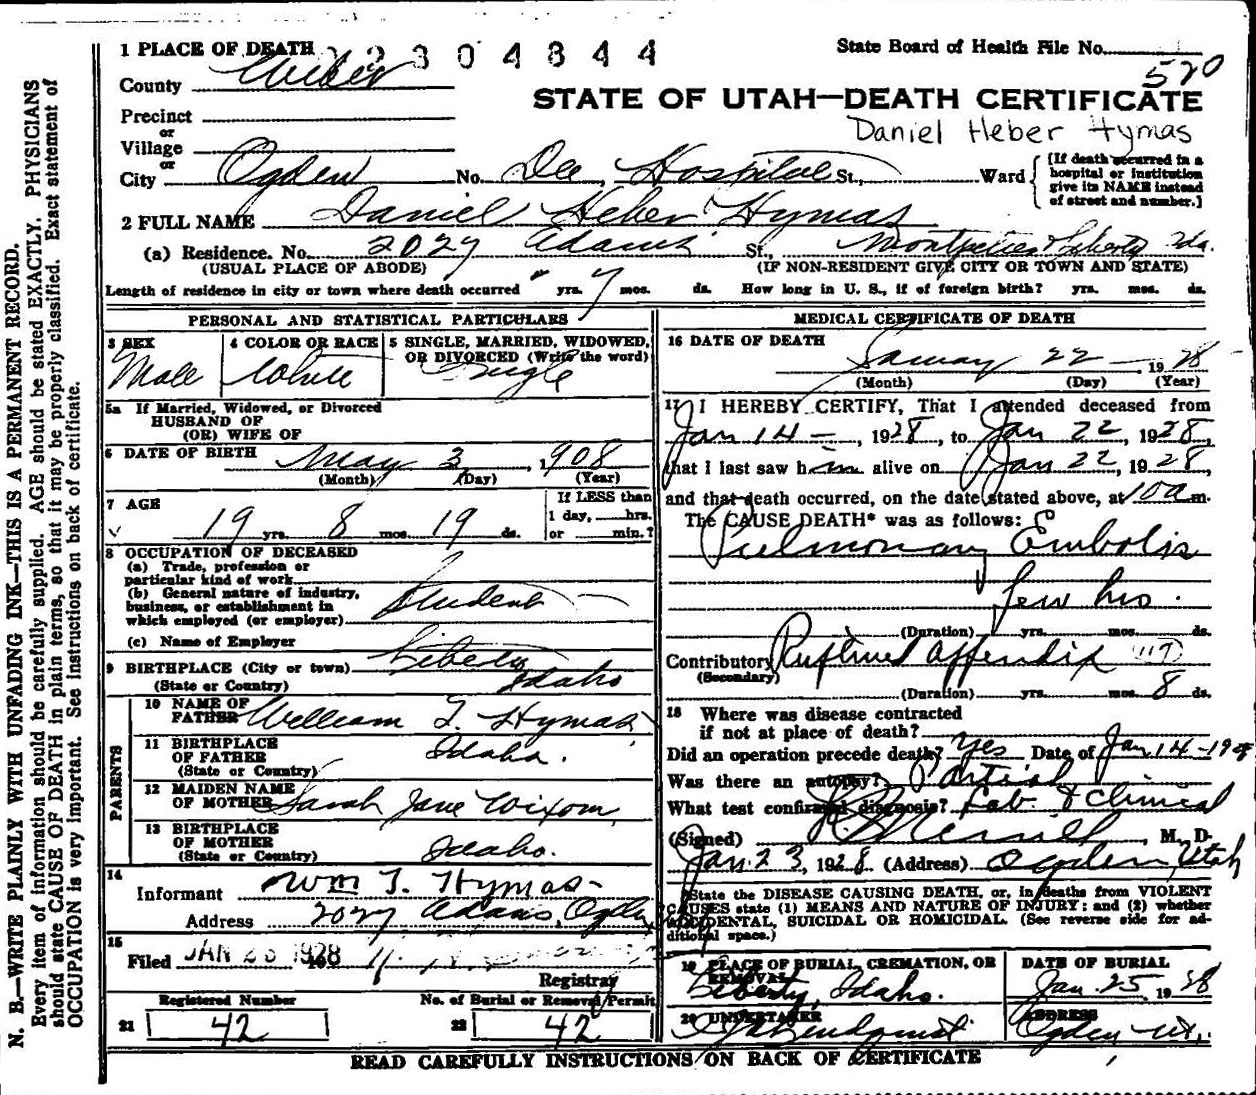 1 PLACE OF DEATH 2 3 0 4 3 4 4
State Board of Health File No.
520
County Weber
STATE OF UTAH—DEATH CERTIFICATE
Precinct
or
Village
or
Daniel Heber Hymas
City Ogden No. Dee Hospital St., Ward
[If death occurred in a hospital or institution give its NAME instead of street and number.]
2 FULL NAME Daniel Heber Hymas
(a) Residence. No. 2027 Adams St., Montpelier Liberty Ida.
(USUAL PLACE OF ABODE) (IF NON-RESIDENT GIVE CITY OR TOWN AND STATE)
Length of residence in city or town where death occurred " yrs. 7 mos. ds. How long in U. S., if of foreign birth? yrs. mos. ds.
PERSONAL AND STATISTICAL PARTICULARS
3 SEX
Male
4 COLOR OR RACE
White
5 SINGLE, MARRIED, WIDOWED, OR DIVORCED (Write the word)
Single
5a If Married, Widowed, or Divorced
HUSBAND OF
(OR) WIFE OF
6 DATE OF BIRTH May 3, 1908
(Month) (Day) (Year)
7 AGE
19 yrs. 8 mos. 19 ds.
If LESS than
1 day, hrs.
or min.?
8 OCCUPATION OF DECEASED
(a) Trade, profession or
particular kind of work
(b) General nature of industry,
business, or establishment in
which employed (or employer) Student
(c) Name of Employer
9 BIRTHPLACE (City or town) Liberty
(State or Country) Idaho
PARENTS
10 NAME OF
FATHER William T. Hymas
11 BIRTHPLACE
OF FATHER Idaho.
(State or Country)
12 MAIDEN NAME
OF MOTHER Sarah Jane Wixom,
13 BIRTHPLACE
OF MOTHER Idaho.
(State or Country)
14
Informant Wm T. Hymas
Address 2027 Adams, Ogden
15
Filed JAN 28 1928
Registrar
Registered Number
21 42
No. of Burial or Removal Permit
22 42
MEDICAL CERTIFICATE OF DEATH
16 DATE OF DEATH
January 22 1928
(Month) (Day) (Year)
17 I HEREBY CERTIFY, That I attended deceased from
Jan 14 -, 1928, to Jan 22, 1928,
that I last saw him alive on Jan 22, 1928,
and that death occurred, on the date stated above, at 10 a m.
The CAUSE DEATH* was as follows:
Pulmonary Embolis
few hrs.
(Duration) yrs. mos. ds.
Contributory Ruptured appendix 117
(Secondary)
(Duration) yrs. mos. 8 ds.
18 Where was disease contracted
if not at place of death?
Did an operation precede death? Yes Date of Jan 14-1928
Was there an autopsy? Partial
What test confirmed diagnosis? Lab. & Clinical
(Signed) Merrill, M. D.
Jan. 23, 1928 (Address) Ogden, Utah
*State the DISEASE CAUSING DEATH, or, in deaths from VIOLENT
CAUSES state (1) MEANS AND NATURE OF INJURY; and (2) whether
ACCIDENTAL, SUICIDAL OR HOMICIDAL. (See reverse side for ad-
ditional space.)
19 PLACE OF BURIAL, CREMATION, OR
REMOVAL
Liberty, Idaho.
DATE OF BURIAL
Jan. 25 1928
20 UNDERTAKER
Lindquist
ADDRESS
Ogden Ut.
READ CAREFULLY INSTRUCTIONS ON BACK OF CERTIFICATE
N. B.—WRITE PLAINLY WITH UNFADING INK—THIS IS A PERMANENT RECORD.
Every item of information should be carefully supplied. AGE should be stated EXACTLY. PHYSICIANS
should state CAUSE OF DEATH in plain terms, so that it may be properly classified. Exact statement of
OCCUPATION is very important. See instructions on back of certificate.